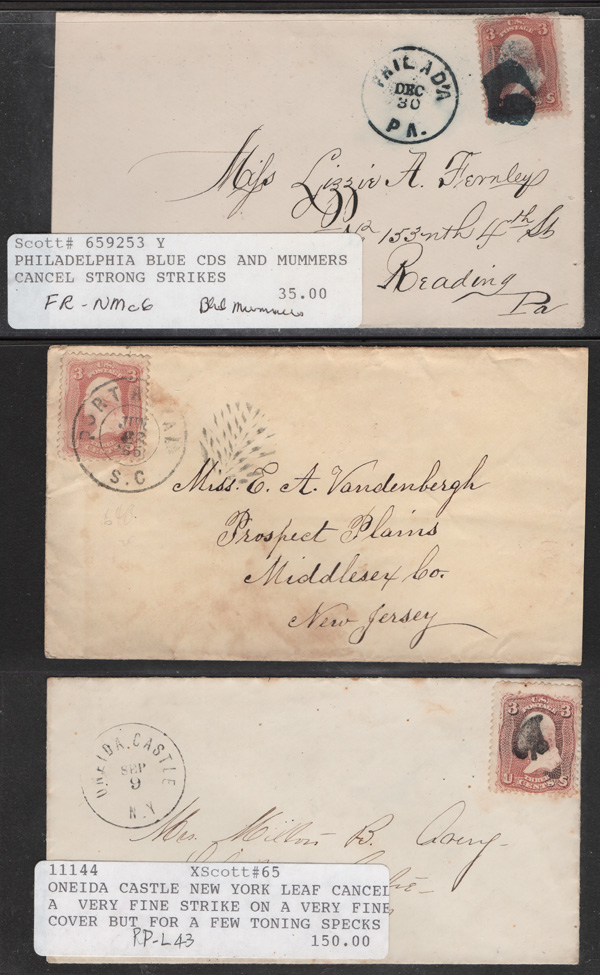 3 U.S. 3
POSTAGE
PHILAD'A
DEC
30
PA.
Miss Lizzie A. Fernley
No 153 nth 4th St
Reading
Pa
Scott# 659253 Y
PHILADELPHIA BLUE CDS AND MUMMERS
CANCEL STRONG STRIKES
35.00
FR-NMc6 Blue Mummers
3 U.S. 3
POSTAGE
PORT ROYAL
S.C
Miss. E. A. Vandenbergh
Prospect Plains
Middlesex Co.
New Jersey
3 U.S. 3
POSTAGE
THREE
U CENTS S
ONEIDA. CASTLE
SEP
9
N.Y
Mrs. Milton B. Avery-
11144 XScott#65
ONEIDA CASTLE NEW YORK LEAF CANCEL
A VERY FINE STRIKE ON A VERY FINE
COVER BUT FOR A FEW TONING SPECKS
RP-L43 150.00